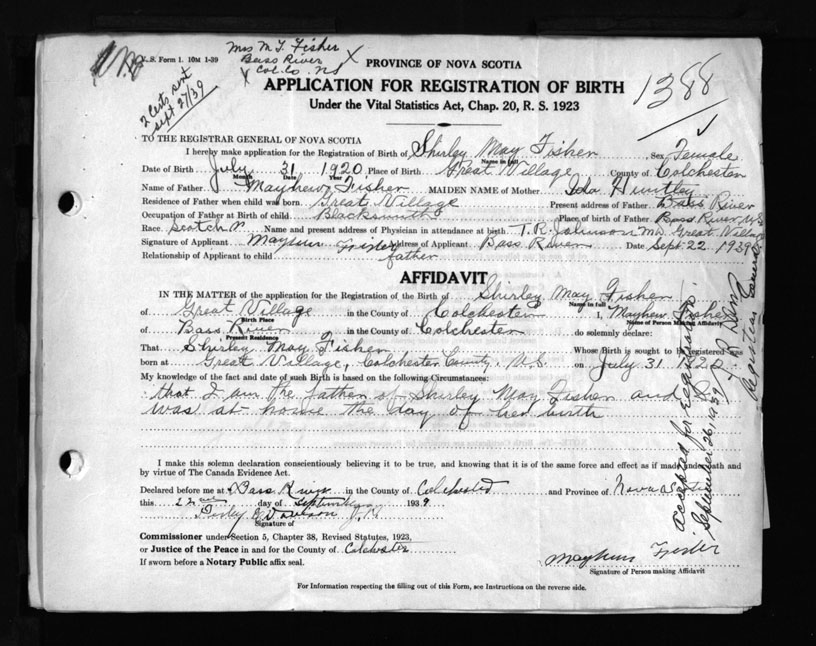 V. S. Form 1. 10M 1-39
Mrs M. T. Fisher
Bass River
Col. Co. NS
2 Certs sent
Sept 27/39
1388
PROVINCE OF NOVA SCOTIA
APPLICATION FOR REGISTRATION OF BIRTH
Under the Vital Statistics Act, Chap. 20, R. S. 1923
TO THE REGISTRAR GENERAL OF NOVA SCOTIA
I hereby make application for the Registration of Birth of Shirley May Fisher Sex Female
Name in full
Date of Birth July 31 1920 Place of Birth Great Village County of Colchester
Month Date Year
Name of Father Mayhew Fisher MAIDEN NAME of Mother Ida Huntley
Residence of Father when child was born Great Village Present address of Father Bass River
Occupation of Father at Birth of child Blacksmith Place of birth of Father Bass River, N.S.
Race Scotch Name and present address of Physician in attendance at birth T. R. Johnson MD Great Village
Signature of Applicant Mayhew Fisher Address of Applicant Bass River Date Sept. 22 1939
Relationship of Applicant to child father
AFFIDAVIT
IN THE MATTER of the application for the Registration of the Birth of Shirley May Fisher
Name in full
of Great Village in the County of Colchester I, Mayhew Fisher
Birth Place Name of Person Making Affidavit
of Bass River in the County of Colchester do solemnly declare:
Present Residence
That Shirley May Fisher Whose Birth is sought to be Registered was
born at Great Village, Colchester County, N.S. on July 31 1920
My knowledge of the fact and date of such Birth is based on the following Circumstances:
that I am the father of Shirley May Fisher and I
was at home the day of her birth
I make this solemn declaration conscientiously believing it to be true, and knowing that it is of the same force and effect as if made under oath and
by virtue of The Canada Evidence Act.
Declared before me at Bass River in the County of Colchester and Province of Nova Scotia
this 22nd day of September 1939
Davison J.P.
Signature of
Commissioner under Section 5, Chapter 38, Revised Statutes, 1923,
or Justice of the Peace in and for the County of Colchester
If sworn before a Notary Public affix seal.
Mayhew Fisher
Signature of Person making Affidavit
For Information respecting the filling out of this Form, see Instructions on the reverse side.
Accepted for Registration
September 26, 1939
Registrar General